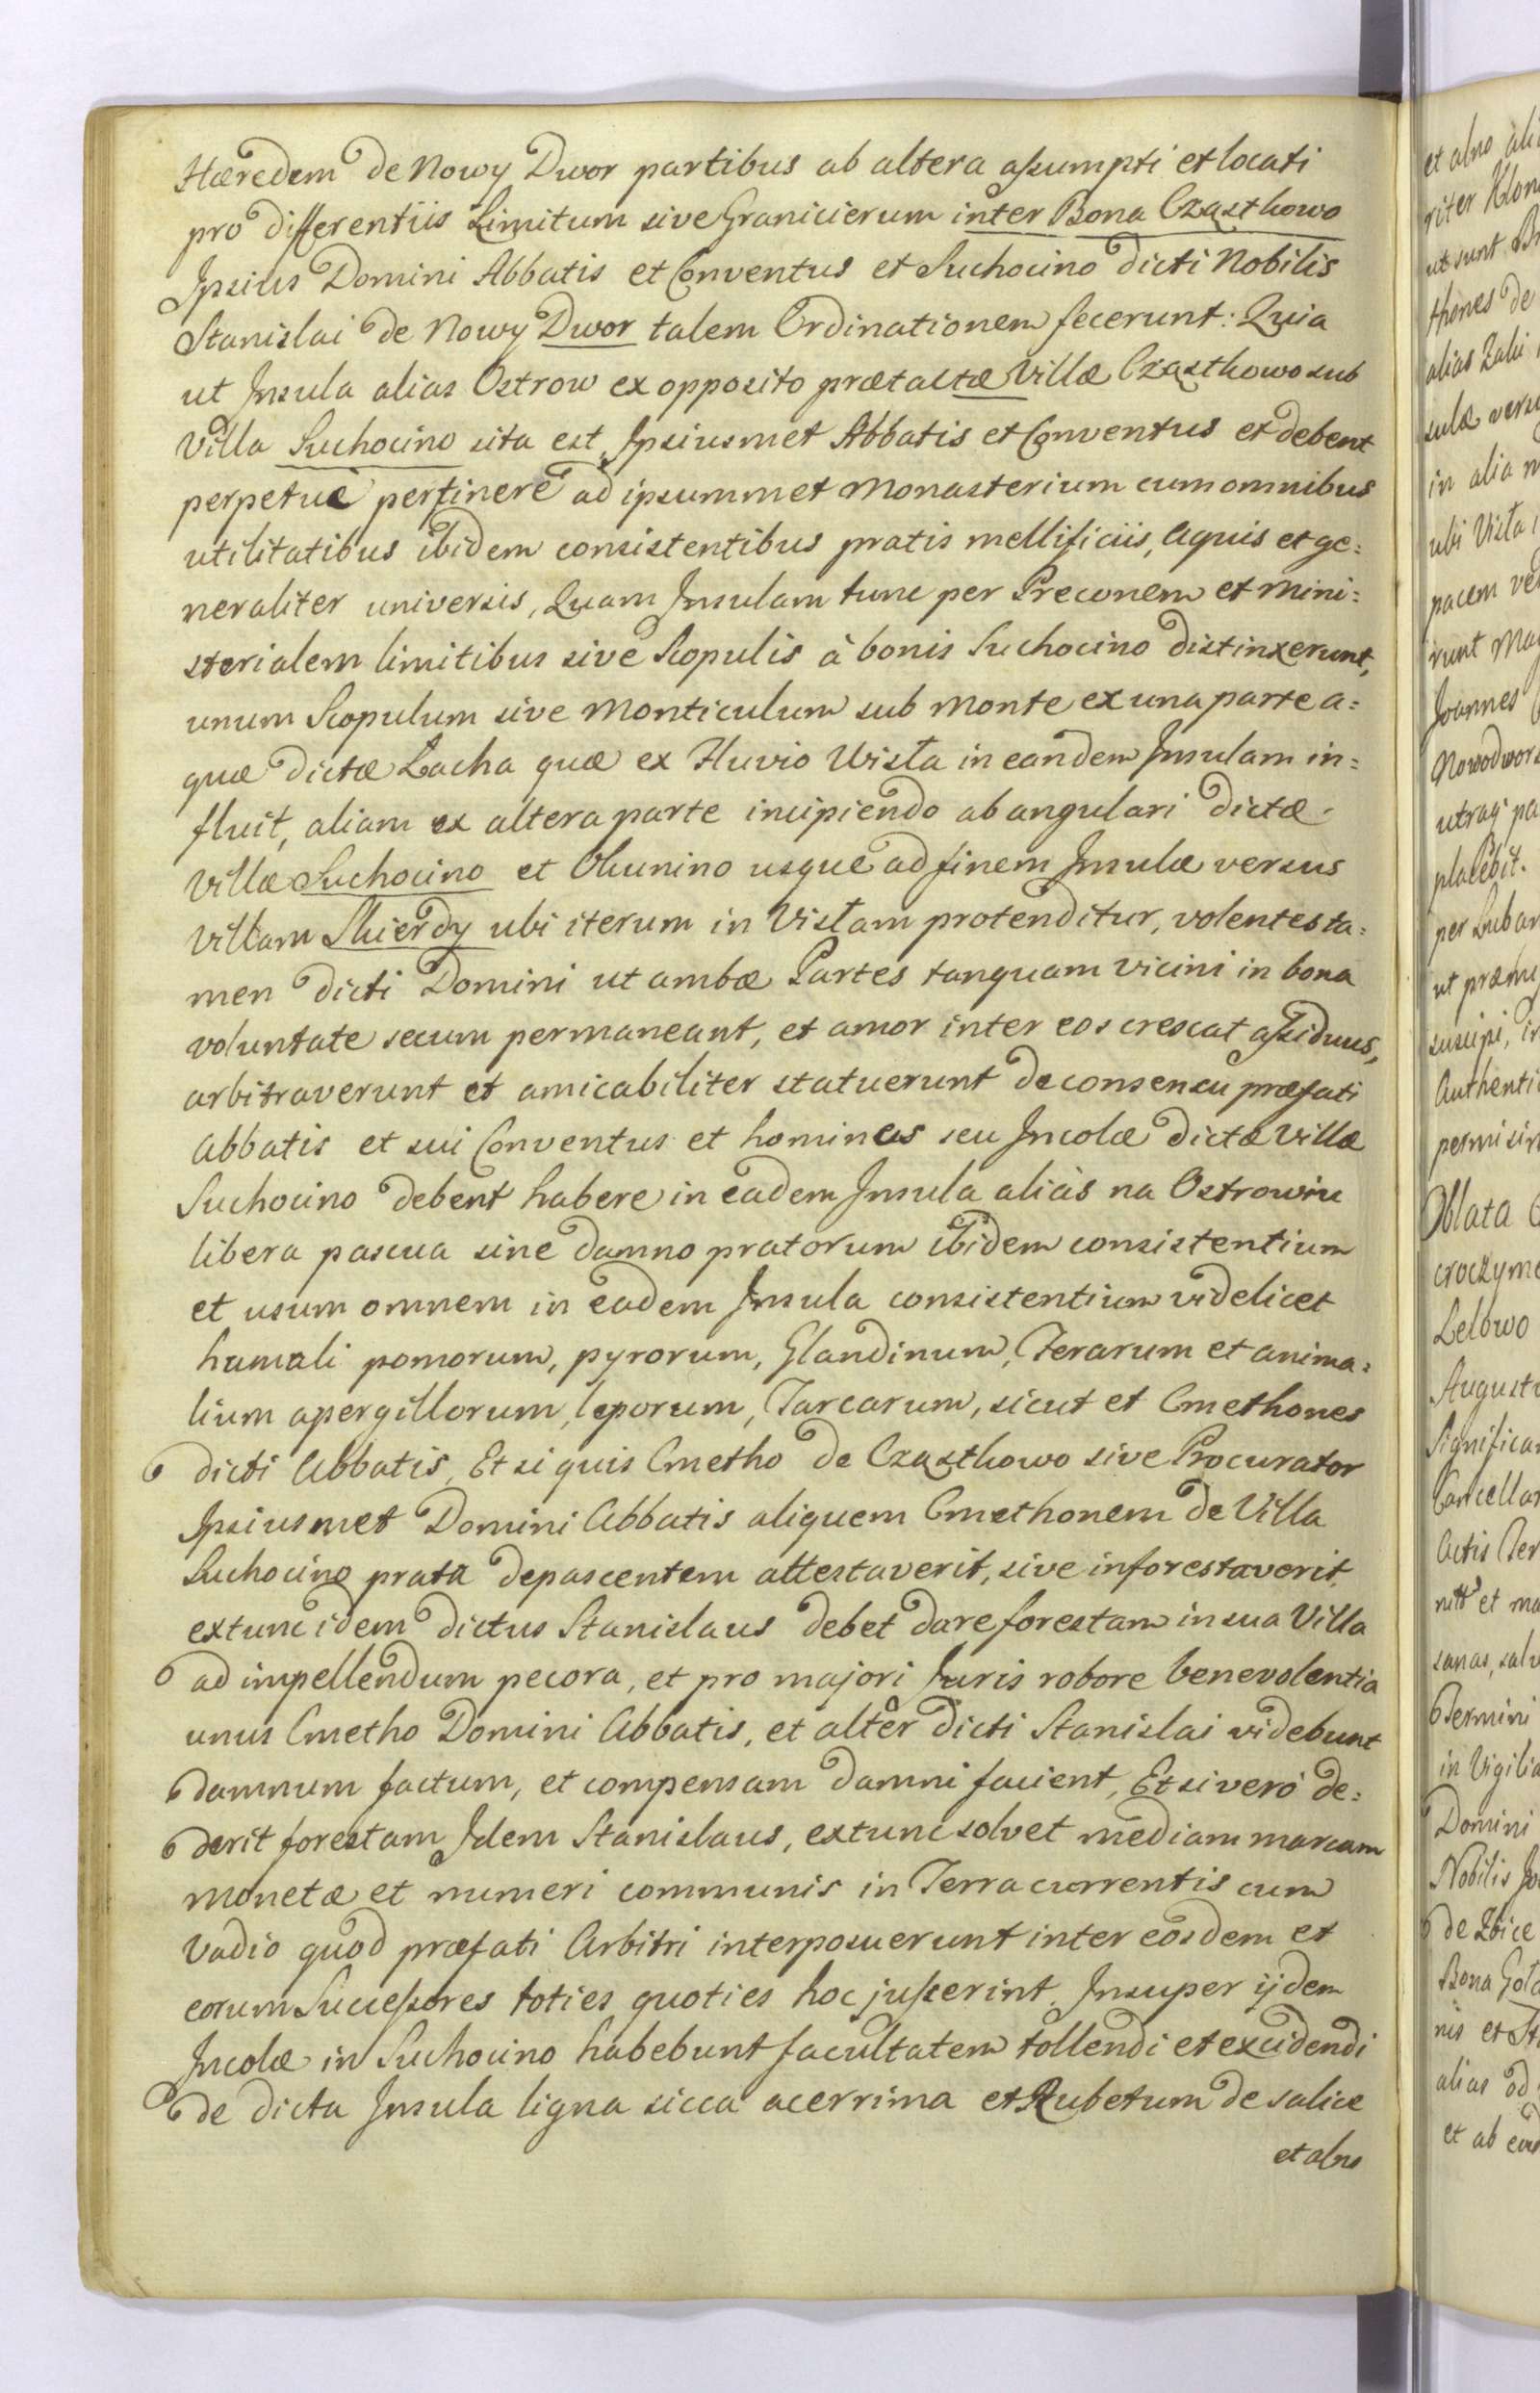 Hæredem de Nowy Dwor partibus ab altera assumpti et locati
pro differentiis Limitum sive Granicierum inter Bona Cząsthowo
Ipsius Domini Abbatis et Conventus et Suchocino dicti Nobilis
Stanislai de Nowy Dwor talem Ordinationem fecerunt: Quia
ut Insula alias Ostrow ex opposito prætactæ Villæ Cząsthowo sub
Villa Suchocino sita est Ipsiusmet Abbatis et Conventus et debent
perpetuè pertinere ad ipsummet Monasterium cum omnibus
utilitatibus ibidem consistentibus pratis mellificiis, Aquis et ge=
neraliter universis, Quam Insulam tunc per Preconem et Mini=
sterialem limitibus sive Scopulis à bonis Suchocino distinxerunt,
unum Scopulum sive Monticulum sub Monte ex una parte a=
quæ dictæ Łacha quæ ex Fluvio Wisła in eandem Insulam in=
fluit, aliam ex altera parte incipiendo ab angulari dictæ
Villæ Suchocino et Okunino usque ad finem Insulæ versus
Villam Skierdy ubi iterum in Visłam protenditur, volentes ta=
men dicti Domini ut ambæ Partes tanquam vicini in bona
voluntate secum permaneant, et amor inter eos crescat assiduus,
arbitraverunt et amicabiliter statuerunt de consensu præfati
Abbatis et sui Conventus et homines seu Incolæ dictæ Villæ
Suchocino debent habere in eadem Insula aliàs na Ostrowiu
libera pascua sine damno pratorum ibidem consistentium
et usum omnem in eadem Insula consistentium videlicet
humali pomorum, pyrorum, Glandinum, Ferarum et anima=
lium apergillorum, leporum, Sarcarum, sicut et Cmethones
dicti Abbatis, Et si quis Cmetho de Cząsthowo sive Procurator
Ipsiusmet Domini Abbatis aliquem Cmethonem de Villa
Suchocino prata depascentem attestaverit, sive inforestaverit
extunc idem dictus Stanislaus debet dare forestam in sua Villa
ad impellendum pecora, et pro majori Juris robore benevolentia
unus Cmetho Domini Abbatis, et alter dicti Stanislai videbunt
damnum factum, et compensam damni facient, Et si verò de=
derit forestam Idem Stanislaus, extunc solvet mediam marcam
monetæ et numeri communis in Terra currentis cum
Vadio quod præfati Arbitri interposuerunt inter eosdem et
eorum Successores toties quoties hoc jusserint. Insuper ijdem
Incolæ in Suchocino habebunt facultatem tollendi et excidendi
de dicta Insula ligna sicca acerrima et Rubetum de salice
et alno
et alno
ut sunt
thones de
alias
sulæ
in alia
ubi Wisła
pacem
Joannes
placebit.
suscipi,
Oblata
Lelowo
Cancellar
et ma
Termini
in Vigilia
Domini
Nobilis
Bona
nis et
alias od
et ab